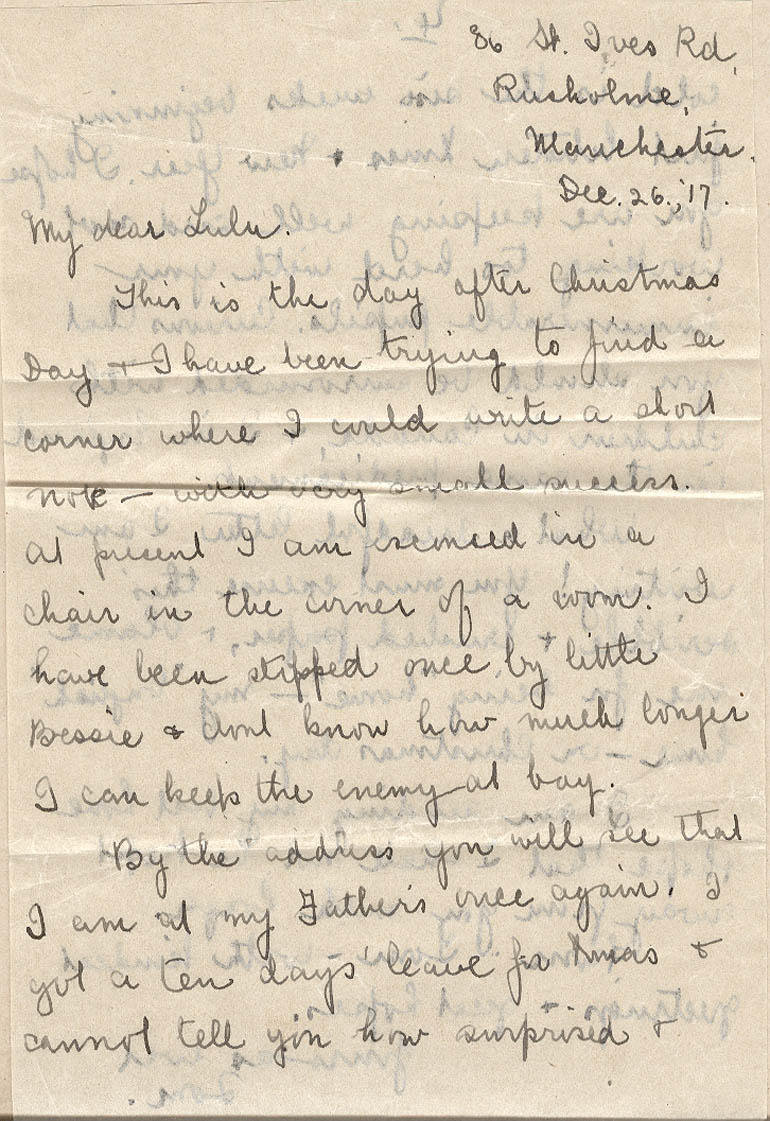 86 St. Ives Rd,
Rusholme,
Manchester.
Dec. 26., '17.
My dear Lulu.
This is the day after Christmas
Day + I have been trying to find a
corner where I could write a short
note — with very small success.
At present I am esconced in a
chair in the corner of a room. I
have been stopped once by little
Bessie & dont know how much longer
I can keep the enemy at bay.
By the address you will see that
I am at my Father's once again. I
got a ten days' leave for Xmas &
cannot tell you how surprised &